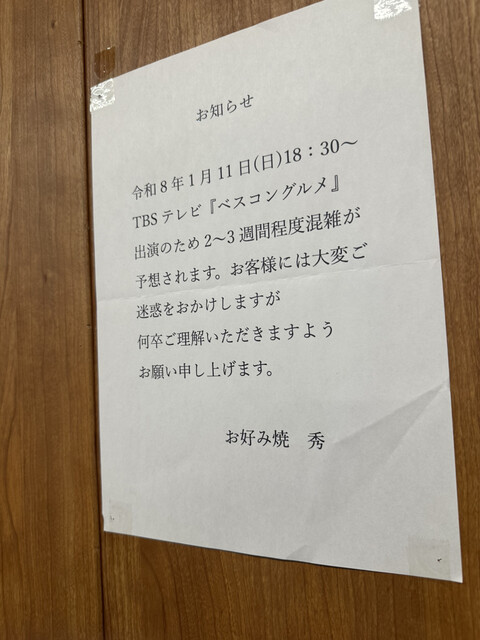 お知らせ
令和8年1月11日(日)18：30～
TBSテレビ『ベスコングルメ』
出演のため2～3週間程度混雑が
予想されます。お客様には大変ご
迷惑をおかけしますが
何卒ご理解いただきますよう
お願い申し上げます。
お好み焼　秀